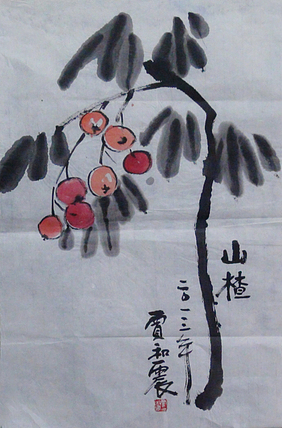 山楂
二〇一三年
贾和震